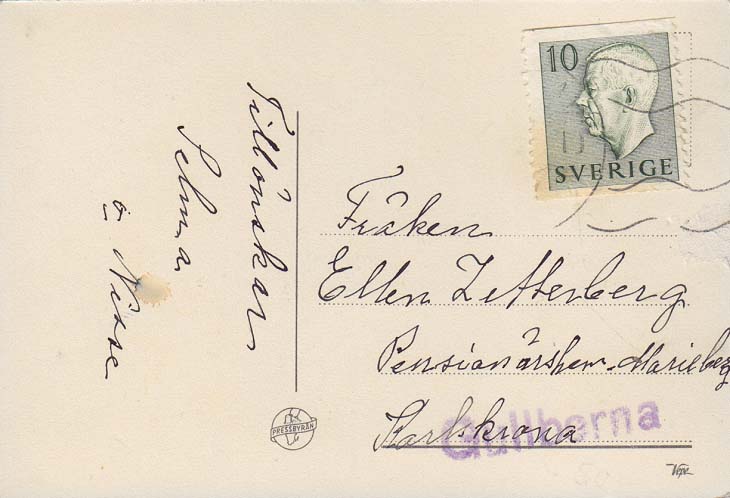 Tillönskar
Selma
o Nisse
10
SVERIGE
Fröken
Ellen Zetterberg
Pensionärshem. Marieberg
Karlskrona
Gullberna
PRESSBYRÅN